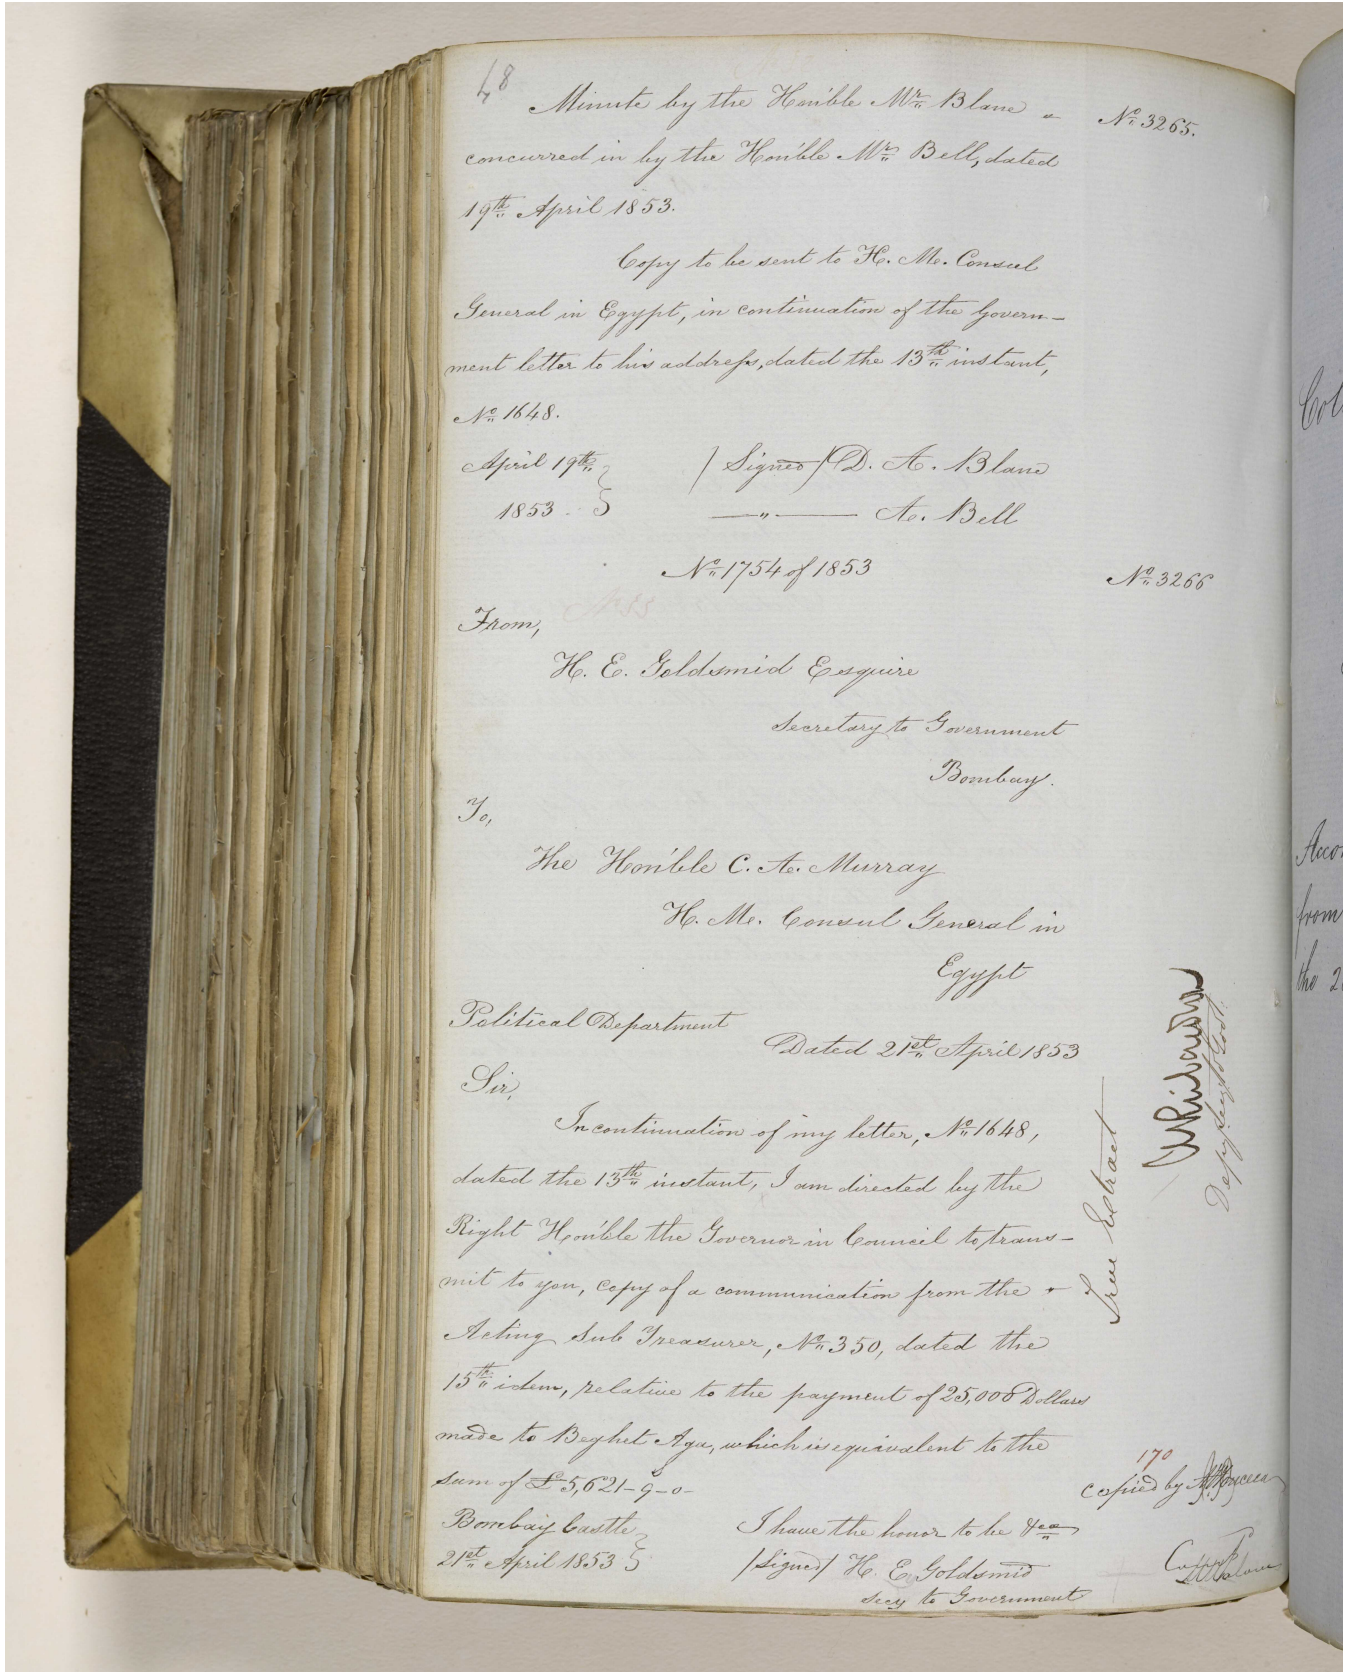 48
Minute by the Hon'ble Mr. Blane
No. 3265.
concurred in by the Hon'ble Mr. Bell, dated
19th April 1853.
Copy to be sent to H. M. Consul
General in Egypt, in continuation of the Govern-
ment letter to his address, dated the 13th instant,
No. 1648.
April 19th
1853
/Signed/ D. A. Blane
—"— A. Bell
No. 1754 of 1853
No. 3266
From,
H. E. Goldsmid Esquire
Secretary to Government
Bombay.
To,
The Hon'ble C. A. Murray
H. M. Consul General in
Egypt
Political Department
Dated 21st April 1853
Sir,
In continuation of my letter, No. 1648,
dated the 13th instant, I am directed by the
Right Hon'ble the Governor in Council to trans-
mit to you, copy of a communication from the
Acting Sub Treasurer, No. 350, dated the
15th idem, relative to the payment of 25,000 Dollars
made to Beghet Aga, which is equivalent to the
sum of £5,621-9-0-
Bombay Castle
21st April 1853
I have the honor to be &ca
/Signed/ H. E. Goldsmid
Secy to Government
True Extract
Depy Secy to Govt.
170
copied by
Acco
from
the 2